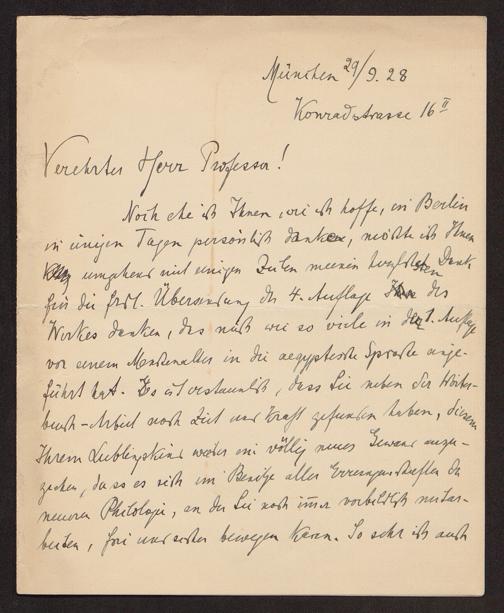 München 29/9. 28
Konradstrasse 16 II
Verehrter Herr Professor!
Noch ehe ich Ihnen, wie ich hoffe, in Berlin
in einigen Tagen persönlich danken, möchte ich Ihnen
umgehend mit einigen Zeilen meinen Dank
für die frdl. Übersendung der 4. Auflage des
Werkes danken, das mich wie so viele in der 1. Auflage
vor einem Menschenalter in die aegyptische Sprache einge-
führt hat. Es ist erstaunlich, dass Sie neben der Wörter-
buch-Arbeit noch Zeit und Kraft gefunden haben, diesem
Ihrem Lieblingskind wieder ein völlig neues Gewand anzu-
ziehen, dass es sich im Besitze aller Errungenschaften der
neueren Philologie, an der Sie noch immer vorbildlich mitar-
beiten, frei und sicher bewegen kann. So sehr ich auch